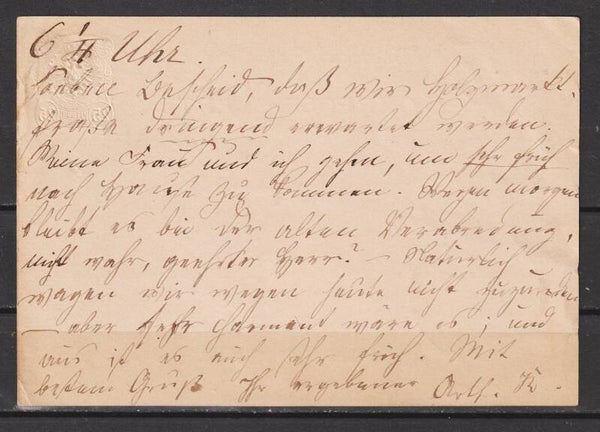 6 ¼ Uhr.
Soeben Bescheid, daß wir Holzmarkt-
straße dringend erwartet werden.
Meine Frau und ich gehen, um sehr früh
nach Hause zu kommen. Wegen morgen
bleibt es bei der alten Verabredung,
nicht wahr, geehrter Herr? — Natürlich
wagen wir wegen heute nicht zuzureden
— aber sehr charmant wäre es; und
aus ist es auch sehr früh. Mit
bestem Gruß Ihr ergebener Arth. K.